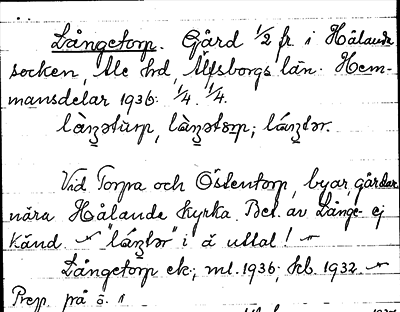 Långetorp. Gård 1/2 fr. i Hålanda
socken, Ale hd, Älfsborgs län. Hem-
mansdelar 1936: 1/4. 1/4.
Vid Torpa och Östentorp, byar, gårdar
nära Hålanda kyrka. Bet. av Långe- ej
känd.
i ä uttal!
Långetorp ek; ml. 1936; kb. 1932.
Prep. på ö. 1